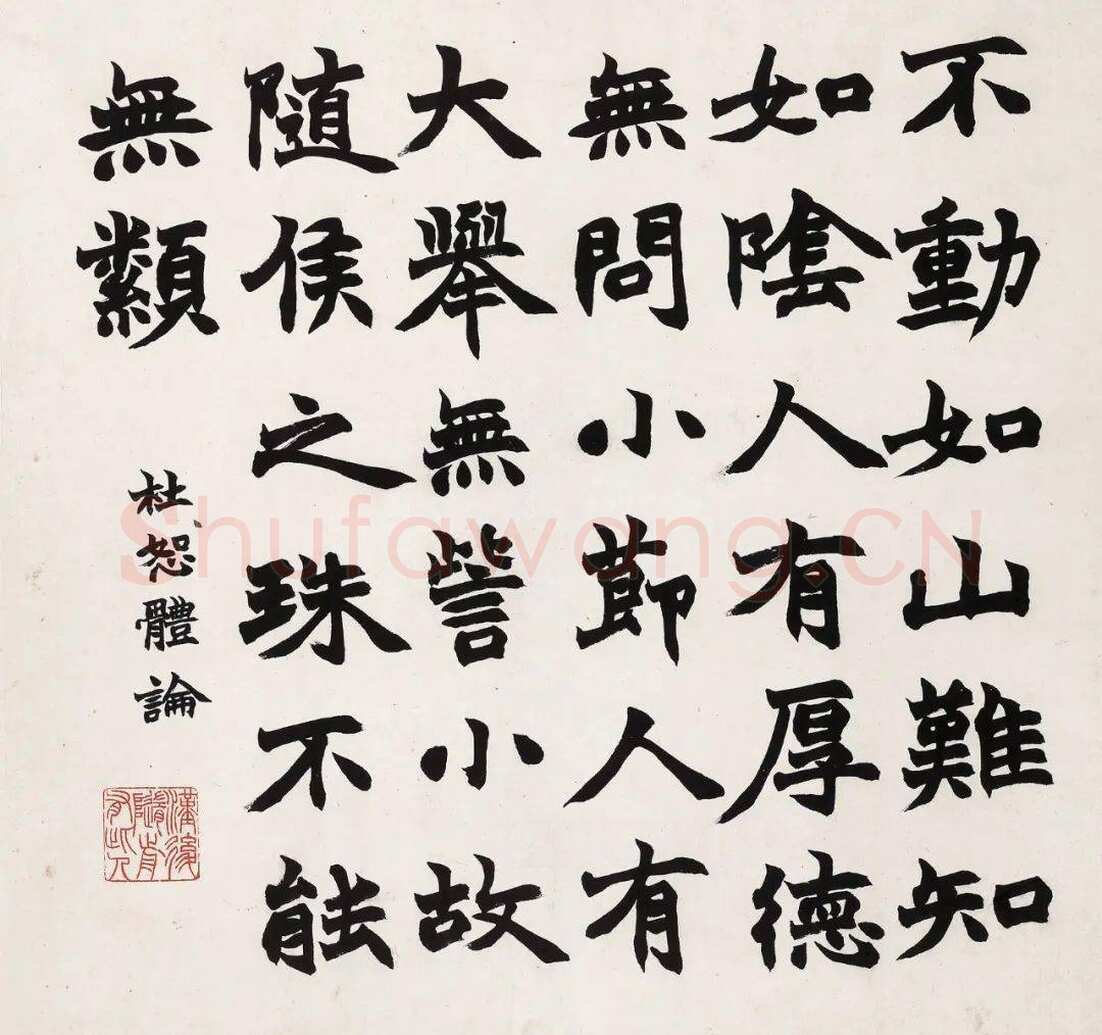 不動如山難知
如陰人有厚德
無問小節人有
大舉無訾小故
隨侯之珠不能
無纇
杜恕體論
Shufawang.CN